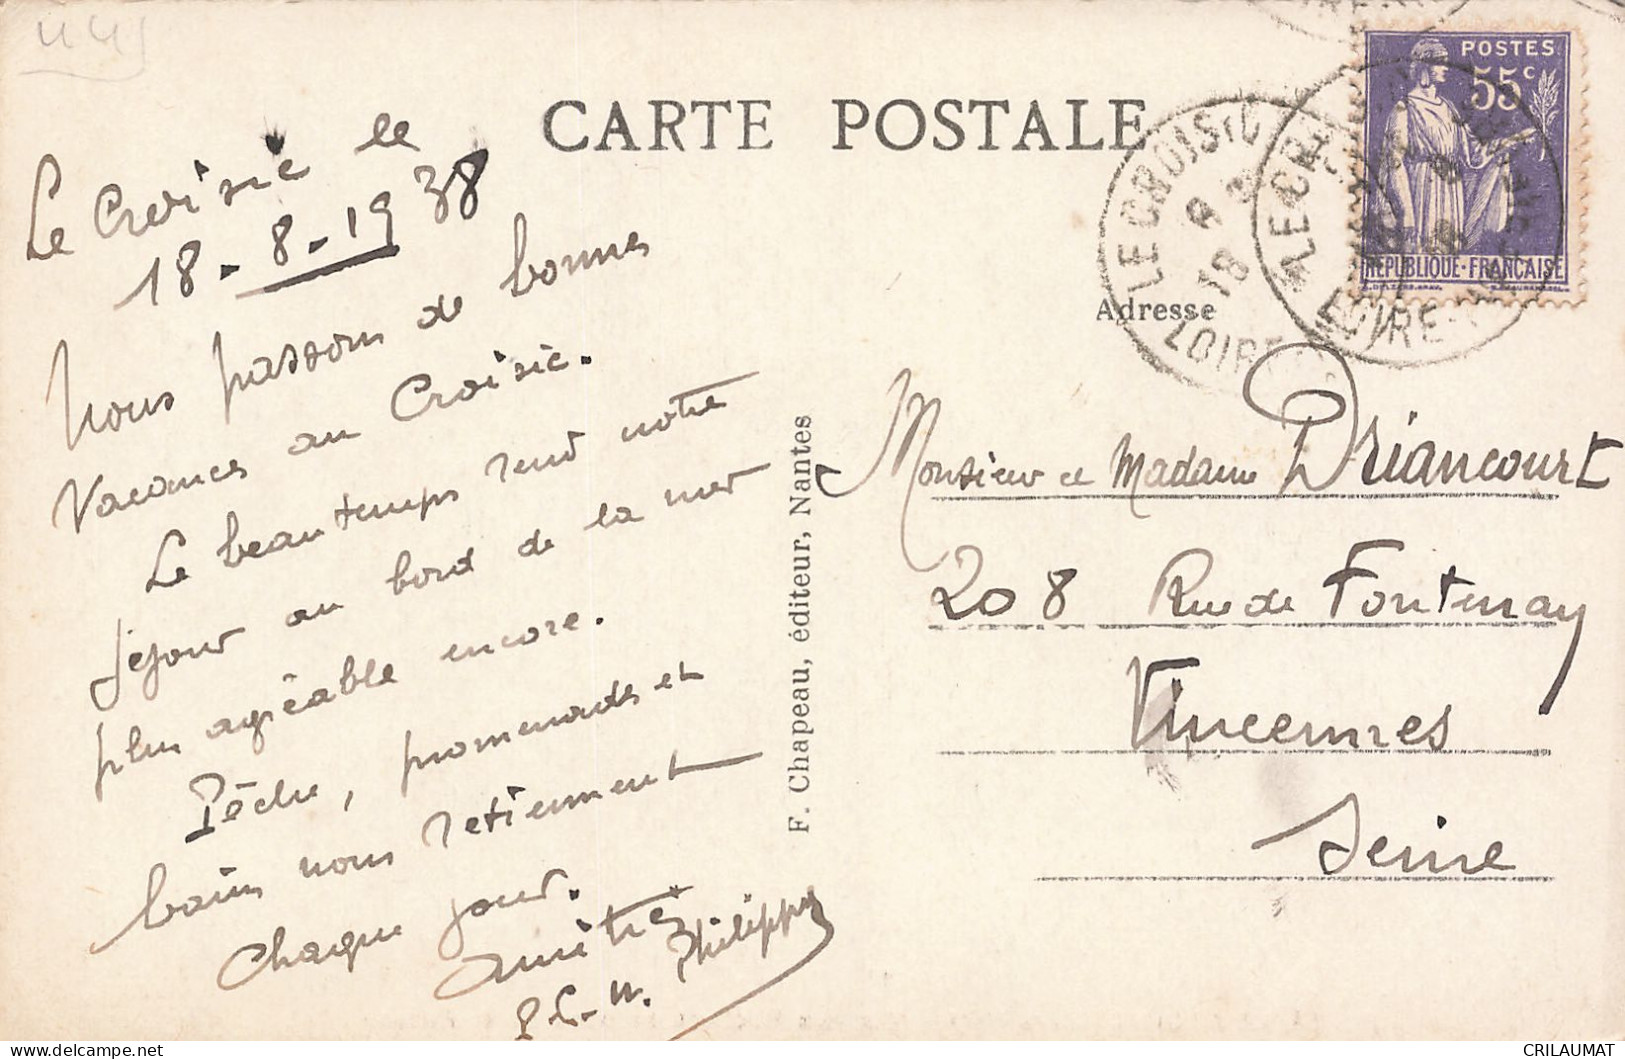 CARTE POSTALE
Le Croisic le
18-8-1938
Nous passons de bonnes
Vacances au Croisic.
Le beau temps rend notre
séjour au bord de la mer
plus agréable encore.
Pêche, promenades et
bains nous retiennent
chaque jour.
Amitiés
Philippe
F. Chapeau, éditeur, Nantes
POSTES
55c
REPUBLIQUE·FRANCAISE
LE CROISIC
18
LOIRE
LE CR
LOIRE
Adresse
Monsieur et Madame Driancourt
208 Rue de Fontenay
Vincennes
Seine
CRILAUMAT